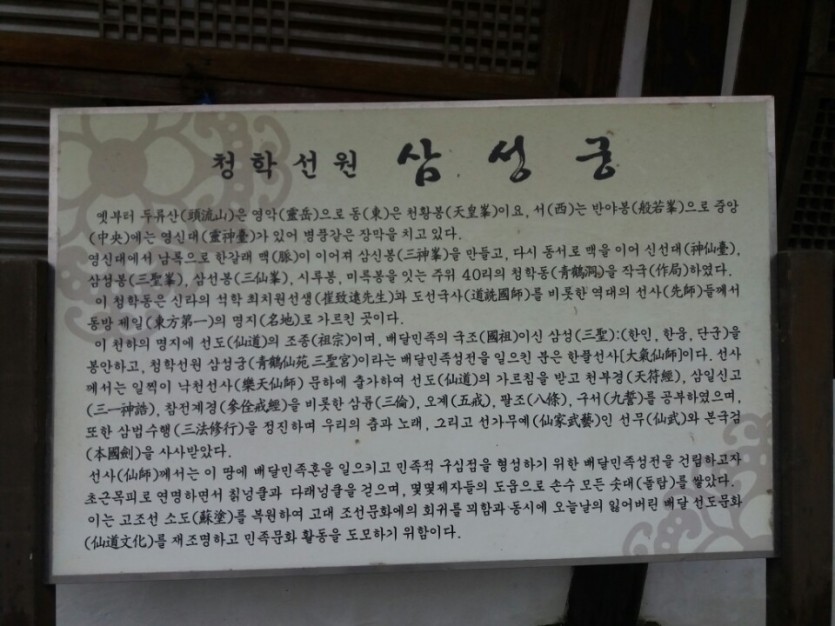 청학선원 삼성궁
옛부터 두류산(頭流山)은 영악(靈岳)으로 동(東)은 천황봉(天皇峯)이요, 서(西)는 반야봉(般若峯)으로 중앙
(中央)에는 영신대(靈神臺)가 있어 병풍같은 장막을 치고 있다.
영신대에서 남쪽으로 한갈래 맥(脈)이 이어져 삼신봉(三神峯)을 만들고, 다시 동서로 맥을 이어 신선대(神仙臺),
삼성봉(三聖峯), 삼선봉(三仙峯), 시루봉, 미륵봉을 잇는 주위 40리의 청학동(青鶴洞)을 작국(作局)하였다.
이 청학동은 신라의 석학 최치원선생(崔致遠先生)과 도선국사(道詵國師)를 비롯한 역대의 선사(先師)들께서
동방 제일(東方第一)의 명지(名地)로 가르킨 곳이다.
이 천하의 명지에 선도(仙道)의 조종(祖宗)이며, 배달민족의 국조(國祖)이신 삼성(三聖):(한인, 한웅, 단군)을
봉안하고, 청학선원 삼성궁(青鶴仙苑 三聖宮)이라는 배달민족성전을 일으킨 분은 한풀선사[大氣仙師]이다. 선사
께서는 일찍이 낙천선사(樂天仙師) 문하에 출가하여 선도(仙道)의 가르침을 받고 천부경(天符經), 삼일신고
(三一神誥), 참전계경(參佺戒經)을 비롯한 삼륜(三倫), 오계(五戒), 팔조(八條), 구서(九誓)를 공부하였으며,
또한 삼법수행(三法修行)을 정진하며 우리의 춤과 노래, 그리고 선가무예(仙家武藝)인 선무(仙武)와 본국검
(本國劍)을 사사받았다.
선사(仙師)께서는 이 땅에 배달민족혼을 일으키고 민족적 구심점을 형성하기 위한 배달민족성전을 건립하고자
초근목피로 연명하면서 칡넝쿨과 다래넝쿨을 걷으며, 몇몇제자들의 도움으로 손수 모든 솟대(돌탑)를 쌓았다.
이는 고조선 소도(蘇塗)를 복원하여 고대 조선문화에의 회귀를 꾀함과 동시에 오늘날의 잃어버린 배달 선도문화
(仙道文化)를 재조명하고 민족문화 활동을 도모하기 위함이다.